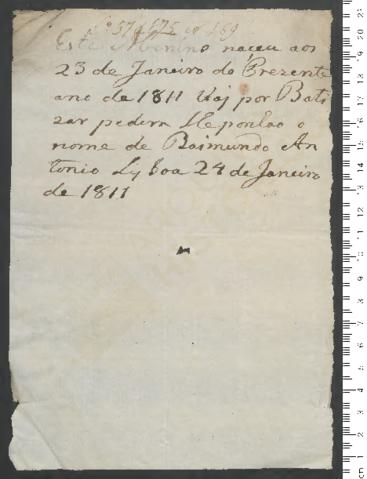 Este Menino naçeu aos
23 de Janeiro do Prezente
ano de 1811 Vaj por Bati
zar pedem lle ponhao o
nome de Raimundo An
tonio Lxboa 24 de Janeiro
de 1811